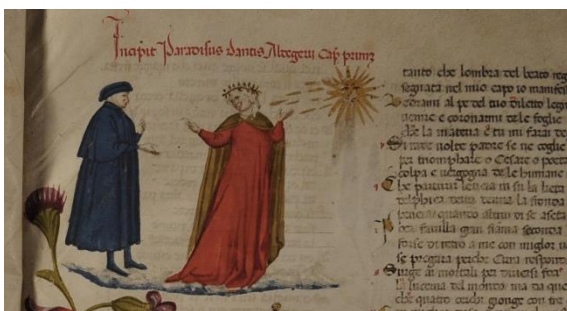 Incipit Paradisus dantis Altegerii Cap primũ
tanto che lombra del beato reg
segnata nel mio capo io manifes
al pe del tuo diletto legn
uenire e coronarmi de le foglie
che la materia e tu mi farai de
Si rade uolte padre se ne coglie
per triomphare o Cesare o poeta
colpa e uergogna de le humane
Che parturir leticia in su la lieta
delphica deita deuria la fronda
peneia quando alcun di se aseta
Poca fauilla gran fiama seconda
forse diretro a me con miglior uo
se pregara perche Cirra respond
Surge ai mortali per diuersi foci
la lucerna del mondo ma da que
che quatro cerchi gionge con tre